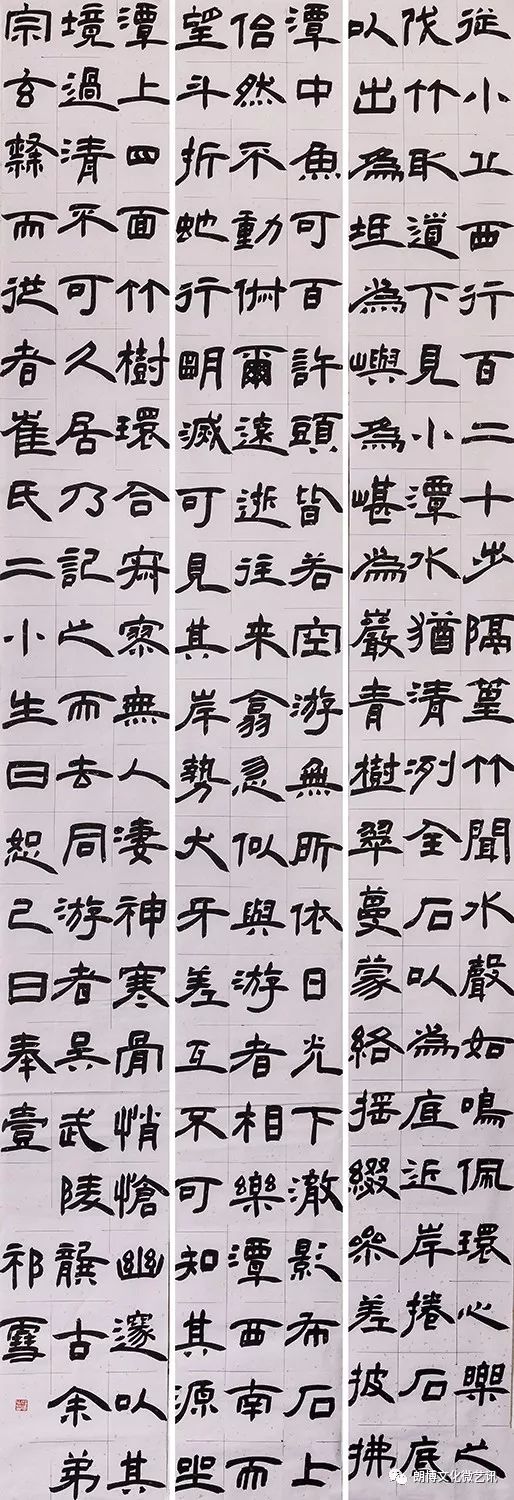 從小丘西行百二十步隔篁竹聞水聲如鳴佩環心樂之
伐竹取道下見小潭水猶清洌全石以為底近岸捲石底
以出為坻為嶼為嵁為嚴青樹翠蔓蒙絡搖綴參差披拂
潭中魚可百許頭皆若空游無所依日光下澈影布石上
佁然不動俶爾遠逝往來翕忽似與游者相樂潭西南而
望斗折虵行明滅可見其岸勢犬牙差互不可知其源坐
潭上四面竹樹環合寂寥無人淒神寒骨悄愴幽邃以其
境過清不可久居乃記之而去同游者吳武陵龔古余弟
宗玄隸而從者崔氏二小生曰恕己曰奉壹 祁雪
朗博文化微艺讯